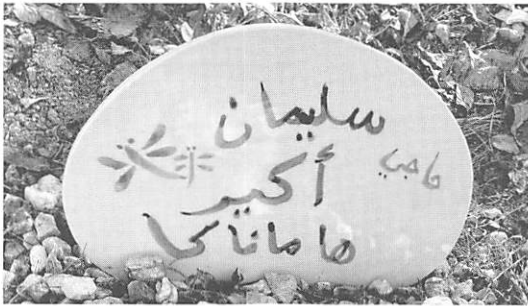 سليمان
حاجي
أكير
هاماناكا